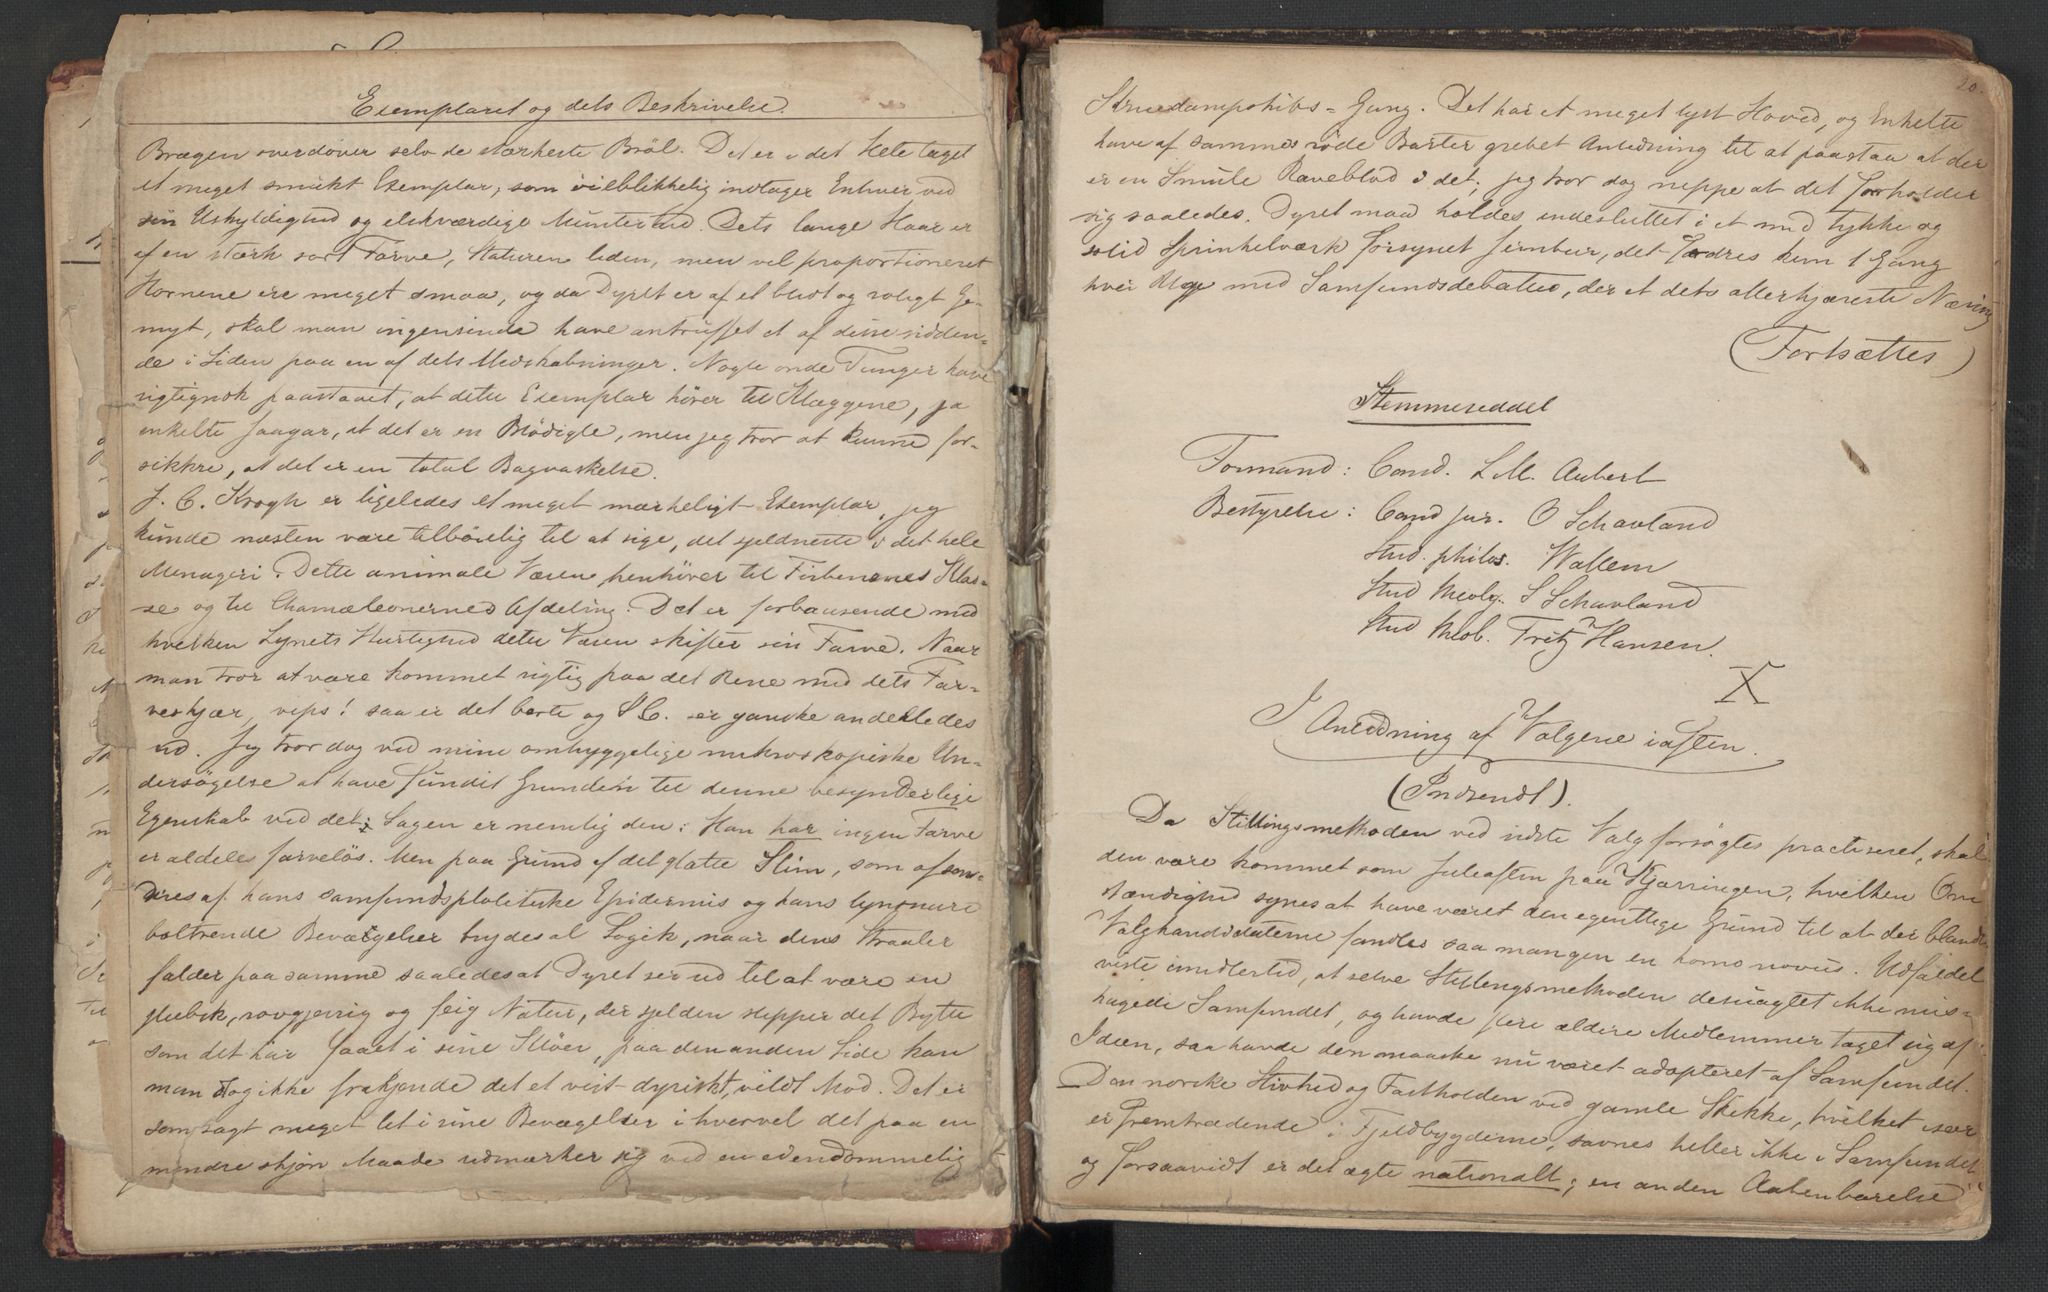 Exemplaret og dets Beskrivelse.
Brægen overdøver selv de stærkeste Bröl. Det er i det Hele taget
et meget smukt Exemplar, som öieblikkelig indtager Enhver ved
sin Uskyldighed og elskværdige Munterhed. Dets lange Haar er
af en stærk sort Farve, Staturen liden, men vel proportioneret
Hornene ere meget smaa, og da Dyret er af et blidt og roligt Ge-
myt, skal man ingensinde have antruffet et af disse sidden-
de i Siden paa en af dets Medskabninger. Nogle onde Tunger have
rigtignok paastaaet, at dette Exemplar hører til Klæggene, ja
enkelte faagar, at det er en Blödigle, men jeg tror at kunne for-
sikkre, at det er en total Bagvaskelse.
J. C. Krogh er ligeledes et meget mærkeligt Exemplar, jeg
kunde næsten være tilböielig til at sige, det sjeldneste i det hele
Menageri. Dette animale Væsen henhöver til Firbenenes Klas-
se og til Chamæleonernes Afdeling. Det er forbausende med
hvilken Lynets Hurtighed dette Væsen skifter sin Farve. Naar
man tror at være kommet rigtig paa det Rene med dets Far-
veskjær, vips! saa er det borte og J C. er ganske anderledes
ud. Jeg tror dog ved mine omhyggelige mikroskopiske Un-
dersøgelse at have fundet Grunden til denne besynderlige
Egenskab ved det; Sagen er nemlig den: Han har ingen Farve
er aldeles farvelös. Men paa Grund af det glatte Slim, som afson-
dres af hans samfundspolitiske Epidermis og hans lynsnare
boltrende Bevægelser brydes al Logik, naar dens Straaler
falder paa samme saaledes at Dyret ser ud til at være en
glubsk, rovgjerrig og feig Natur, der sjelden slipper det Bytte
som det har faaet i sine Klöer, paa den anden Side kan
man dog ikke frakjende det et vist dyriskt, vildt Mod. Det er
som sagt meget let i sine Bevægelser i hvorvel det paa en
mindre skjøn Maade udmærker sig ved en eiendommelig
20.
Skruedampskibs-Gang. Det har et meget lyst Hoved, og Enkelte
have af sammes røde Barter grebet Anledning til at paastaa at der
er en Smule Ræveblod i det; jeg tror dog neppe at det forholder
sig saaledes. Dyret maa holdes indesluttet i et med tykke og
solid Sprinkelværk forsynet Jernbur, det fodres kun 1 Gang
hver Uge med Samfundsdebatter, der et dets allerkjæreste Næring
(Fortsættes)
Stemmeseddel
Formand: Cand. L. M. Aubert
Bestyrelse: Cand jur. O Schavland
Stud. philos. Wallem
Stud theolg. S Schavland
Stud theol. Fritz Hansen.
X
I Anledning af Valgene iaften.
(Indsendt).
Da Stillingsmethoden ved sidste Valg forsøgtes practiseret, skal
den være kommet som Juleaften paa Kjærringen, hvilken Om
stændighed synes at have været den egentlige Grund til at der blandt
Valgkandidaterne fandtes saa mangen en homo novus. Udfaldet
viste imidlertid, at selve Stillingsmethoden desuagtet ikke mis-
hagede Samfundet, og havde flere ældre Medlemmer taget sig af
Ideen, saa havde den maaske nu været adopteret af Samfundet.
Den norske Stivhed og Fastholden ved gamle Skikke, hvilket især
er fremtrædende i Fjeldbygderne, savnes heller ikke i Samfundet
og forsaavidt er det ægte nationalt; en anden Aabenbarelse